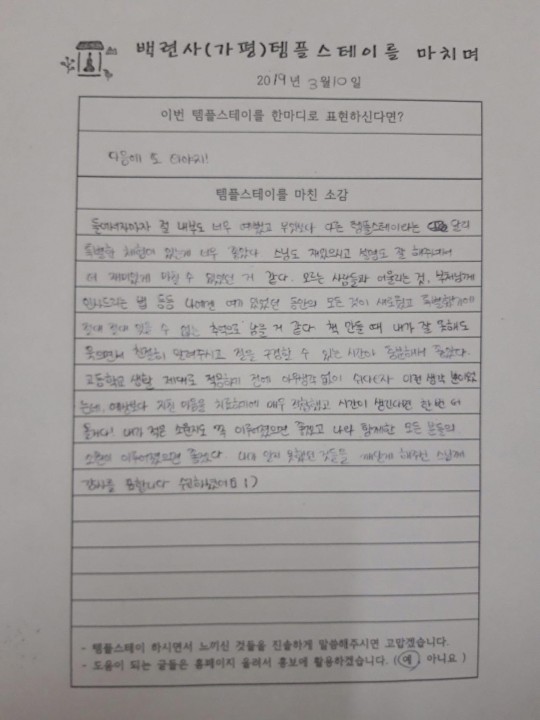 백련사(가평)템플스테이를 마치며
2019년 3월10일
이번 템플스테이를 한마디로 표현하신다면?
다음에 또 타야지!
템플스테이를 마친 소감
절 내부도 너무 예뻤고 무엇보다 다른 템플스테이와는 달리
특별한 체험이 있는게 너무 좋았다 스님도 재밌으시고 설명도 잘 해주셔서
더 재미있게 할 수 있었던 거 같다. 모르는 사람들과 어울리는 것, 부처님께
인사드리는 법 등등 나에겐 여기 있었던 동안의 모든 것이 새로웠고 특별했기에
절대 절대 잊을 수 없는 추억으로 남을 거 같다 책 만들 때 내가 잘 못해도
웃으면서 친절히 알려주시고 절을 구경할 수 있는 시간이 충분해서 좋았다.
고등학교 생활 제대로 적응하기 전에 아무생각 없이 쉬다오자 이런 생각
는데, 예상보다 지친 마음을 치료하기에 매우 적합했고 시간이 생긴다면 한 번 더
올거다! 내가 적은 소원지도 꼭 이루어졌으면 좋겠고 나와 함께한 모든 분들의
소원이 이루어졌으면 좋겠다. 내가 알지 못했던 것들을 깨닫게 해주신 스님께
감사를 표합니다 수고하셨어요 :)
- 템플스테이 하시면서 느끼신 것들을 진솔하게 말씀해주시면 고맙겠습니다.
- 도움이 되는 글들은 홈페이지 올려서 홍보에 활용하겠습니다. (예, 아니요 )